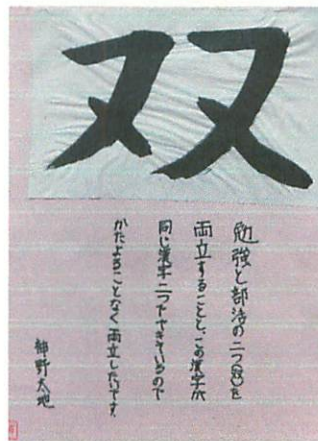 双
勉強と部活の二つ(双)を
両立することと、この漢字が
同じ漢字二つでできているので
かたよることなく両立したいです。
野大地